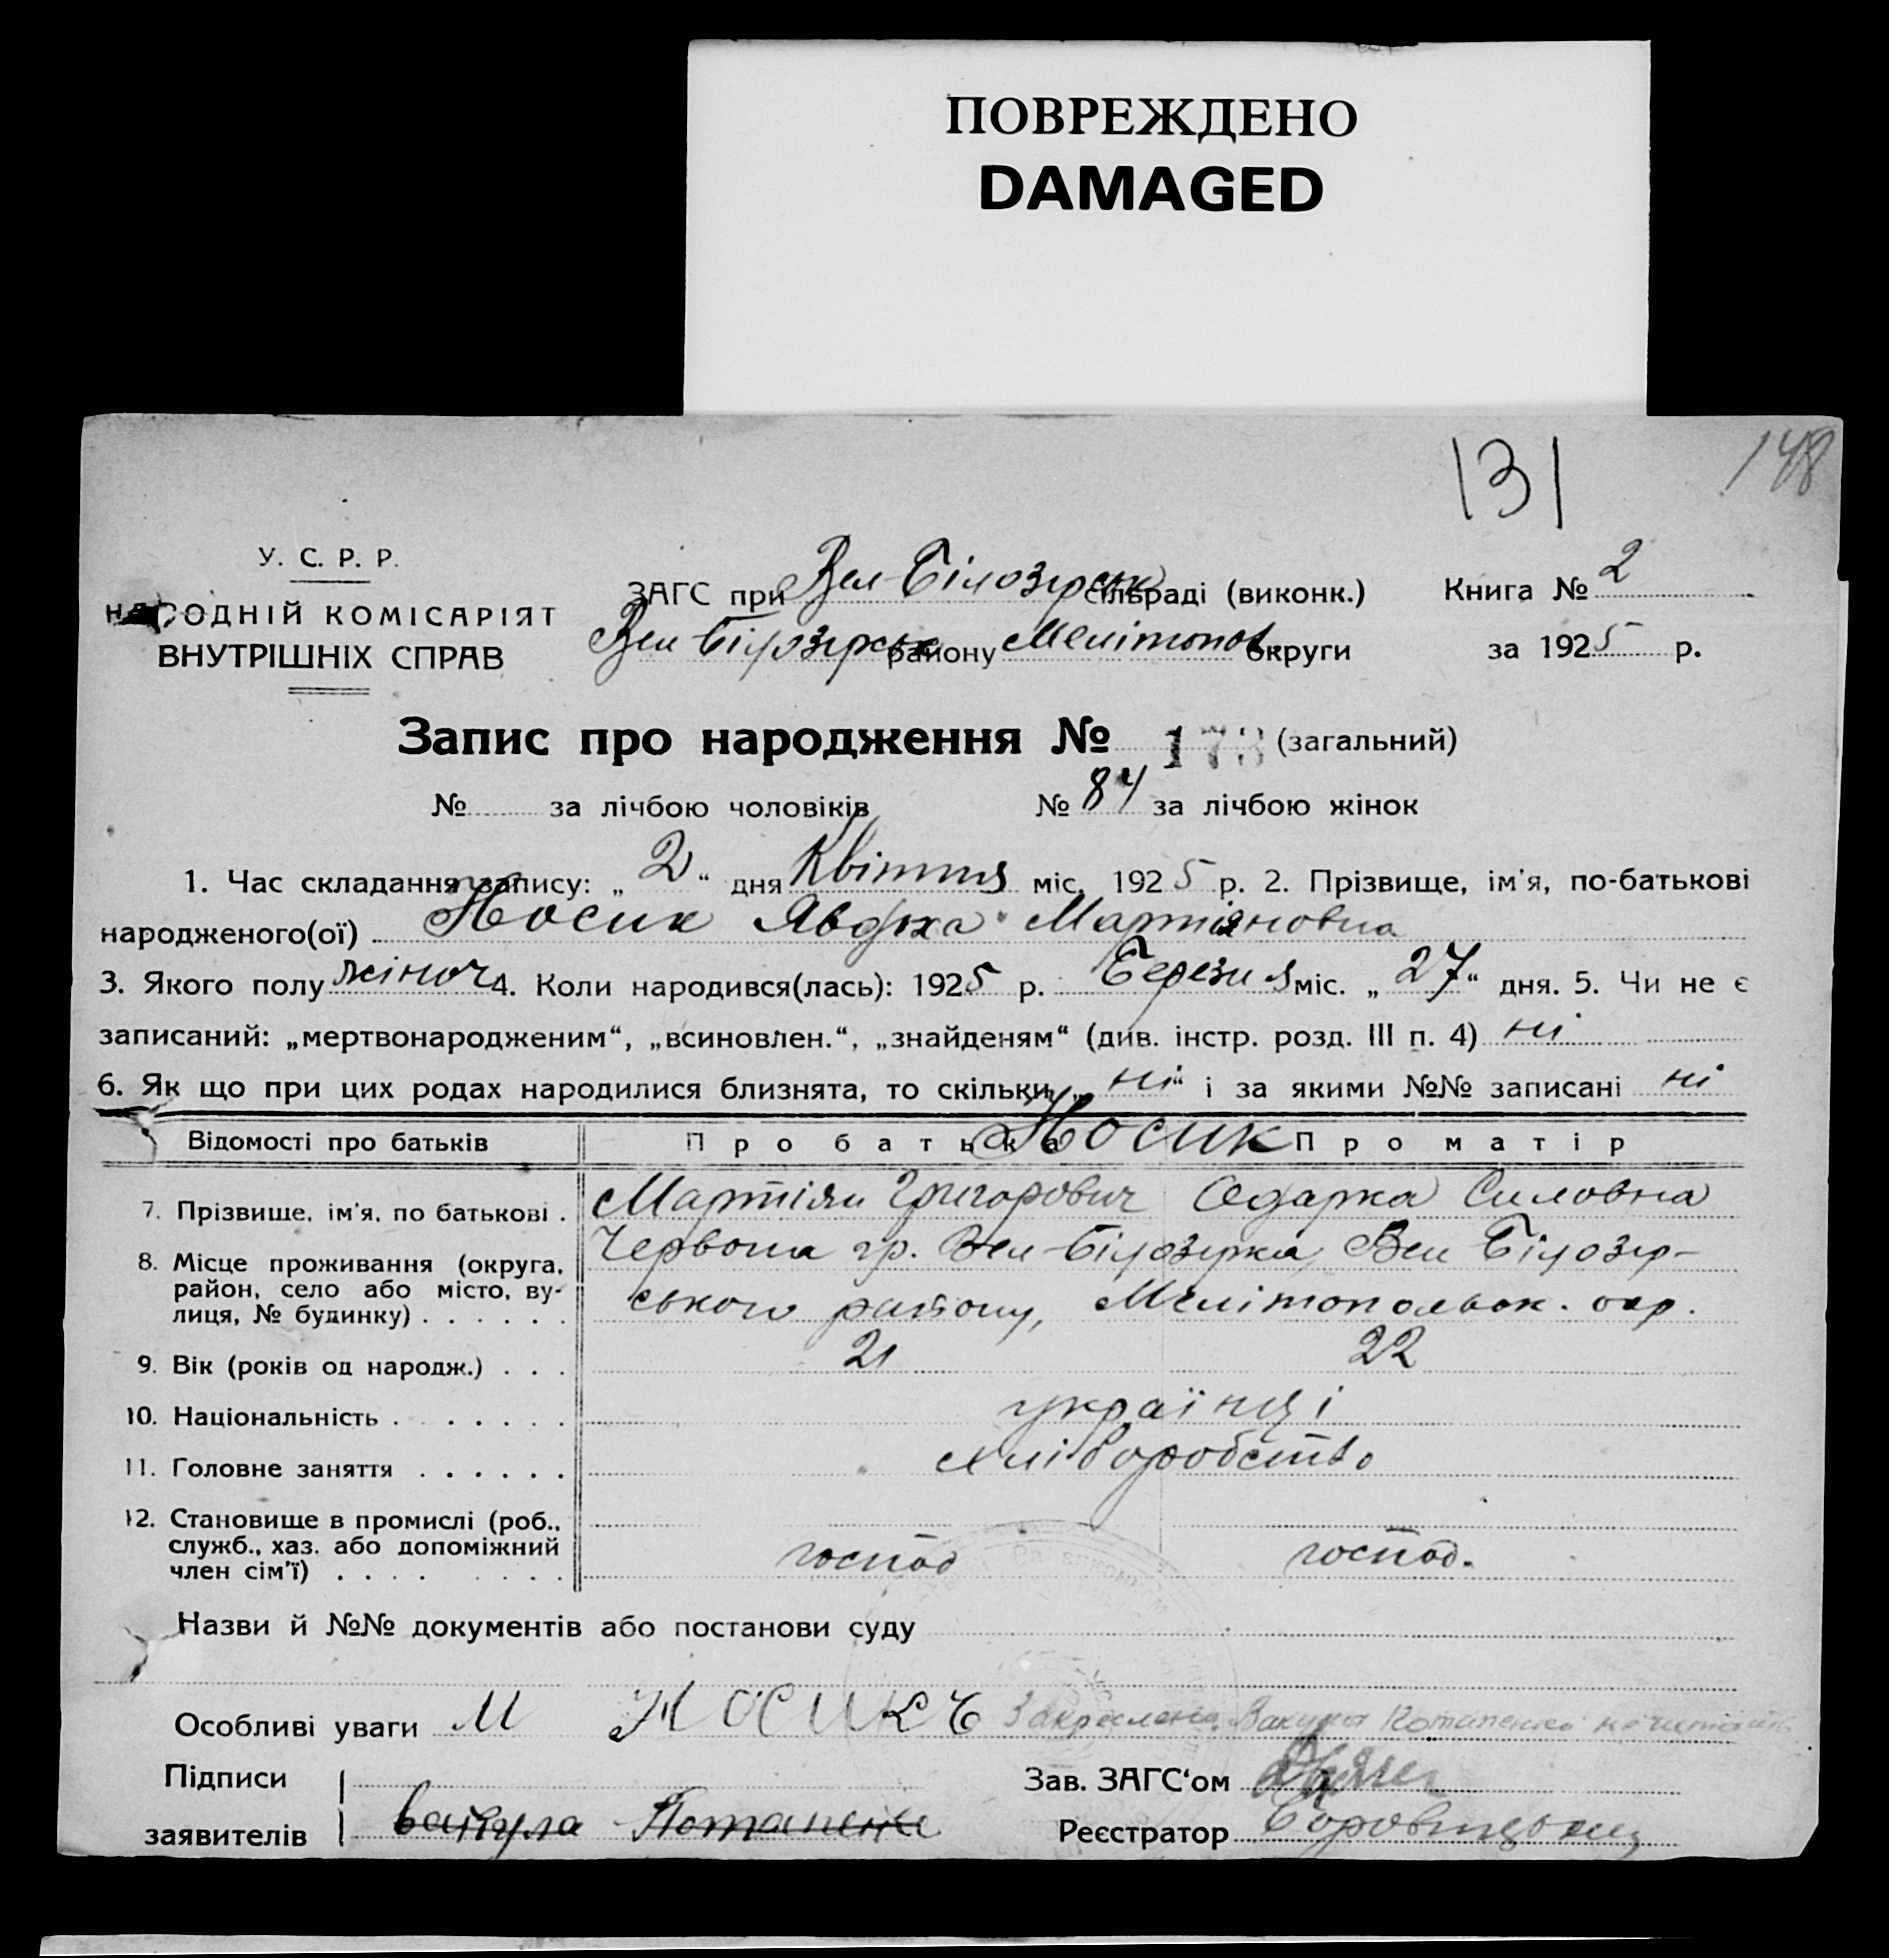 ПОВРЕЖДЕНО
DAMAGED
131
148
У. С. Р. Р.
НАРОДНІЙ КОМІСАРІЯТ
ВНУТРІШНІХ СПРАВ
ЗАГС при Вел-Білозірськ сільраді (виконк.) Книга № 2
Вел Білозірськ району Мелітопов округи за 1925 р.
Запис про народження № 173 (загальний)
№ за лічбою чоловіків № 84 за лічбою жінок
1. Час складання запису: „2“ дня Квітня міс. 1925 р. 2. Прізвище, ім'я, по-батькові
народженого(ої) Носик Явдоха Мартіяновна
3. Якого полу жіноч 4. Коли народився(лась): 1925 р. Березня міс. „27“ дня. 5. Чи не є
записаний: „мертвонародженим“, „всиновлен.“, „знайденям“ (див. інстр. розд. III п. 4) ні
6. Як що при цих родах народилися близнята, то скільки „ні“ і за якими №№ записані ні
Відомості про батьків Про батька Носик Про матір
7. Прізвище, ім'я, по батькові . Мартіян Григорович Одарка Силовна
8. Місце проживання (округа, район, село або місто, вулиця, № будинку) . . . . . . Червона гр. Вел-Білозірка, Вел Білозір-
ського району, Мелітопольск. окр.
9. Вік (років од народж.) . . . 21 22
10. Національність . . . . . . . українці
11. Головне заняття . . . . . . хліборобство
12. Становище в промислі (роб., служб., хаз. або допоміжний член сім'ї) . . . . господ господ.
Назви й №№ документів або постанови суду
Особливі уваги М Носикъ Закреслено Вакула Потапенко не читать
Підписи
заявителів Вакула Потапенко
Зав. ЗАГС‘ом
Реєстратор